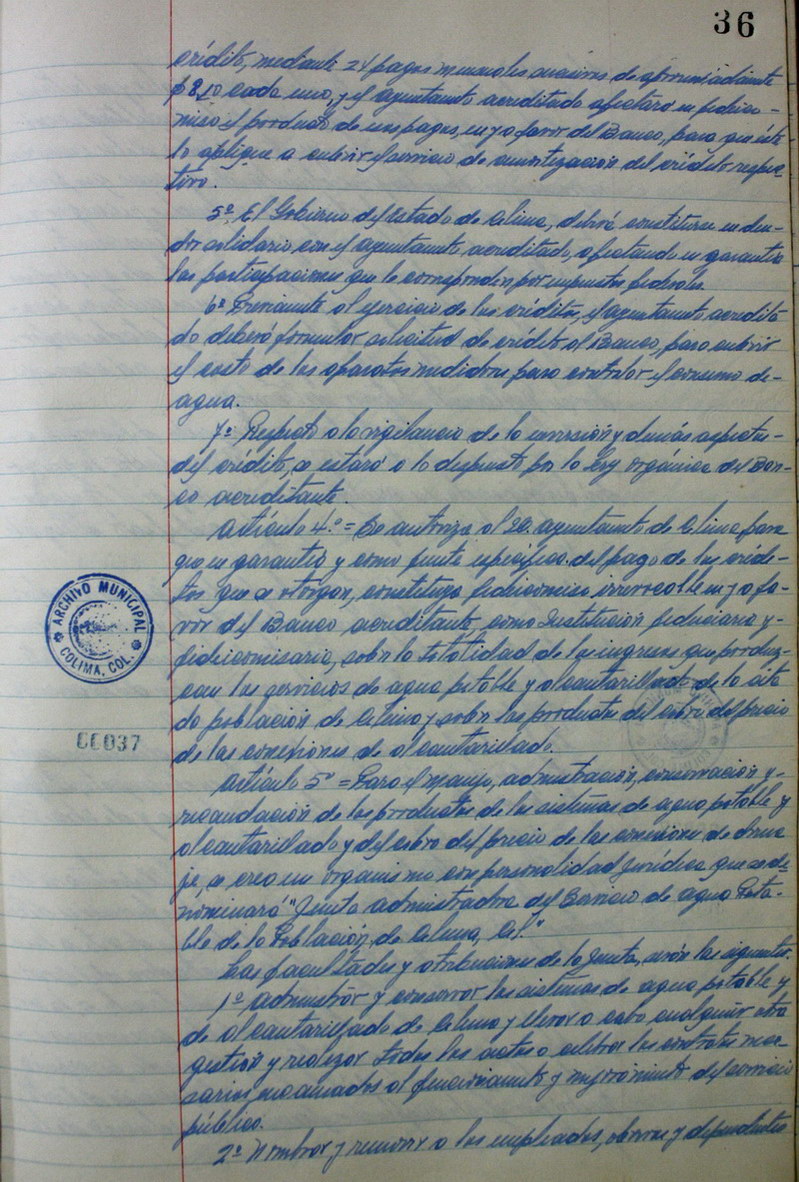 36
crédito, mediante 24 pagos mensuales sucesivos de aproximadamente
$ 8.10 cada uno, y el ayuntamiento acreditado afectará en fideico-
miso el producto de esos pagos, en y a favor del Banco, para que éste
lo aplique a cubrir el servicio de amortización del crédito respec-
tivo.
5ª El Gobierno del Estado de Colima, deberá constituirse en deu-
dor solidario con el ayuntamiento acreditado, afectando en garantía
las participaciones que le corresponden por impuestos federales.
6ª Previamente al ejercicio de los créditos, el ayuntamiento acredita
do deberá formular solicitud de crédito al Banco, para cubrir
el costo de los aparatos medidores para controlar el consumo de-
agua.
7ª Respecto a la vigilancia de la inversión y demás aspectos-
del crédito, se estará a lo dispuesto por la Ley orgánica del Ban-
co acreditante.
Artículo 4º = Se autoriza al ayuntamiento de Colima, para
que en garantía y como fuente específica del pago de los crédi-
tos que se otorgan, constituya fideicomiso irrevocable en y a fa-
vor del Banco acreditante, como Institución fiduciaria y-
fideicomisaria, sobre la totalidad de los ingresos que produz-
can los servicios de agua potable y alcantarillado de la cita
da población de Colima y sobre los productos del cobro del precio
de las conexiones de alcantarillado.
Artículo 5º = Para el manejo, administración, conservación y-
recaudación de los productos de los sistemas de agua potable y
alcantarillado y del cobro del precio de las conexiones de drena
je, se crea un organismo con personalidad jurídica que se de-
nominará "Junta administradora del Servicio de agua Pota-
ble de la Población de Colima, Col."
Las facultades y atribuciones de la Junta, serán las siguientes.
1ª administrar y conservar los sistemas de agua potable y
de alcantarillado de Colima y llevar a cabo cualquier otra
gestión y realizar todos los actos o celebrar los contratos nece-
sarios, encaminados al funcionamiento y mejoramiento del servicio
público.
2ª Nombrar y remover a los empleados, obreros y dependientes
ARCHIVO MUNICIPAL
COLIMA, COL.
CC037